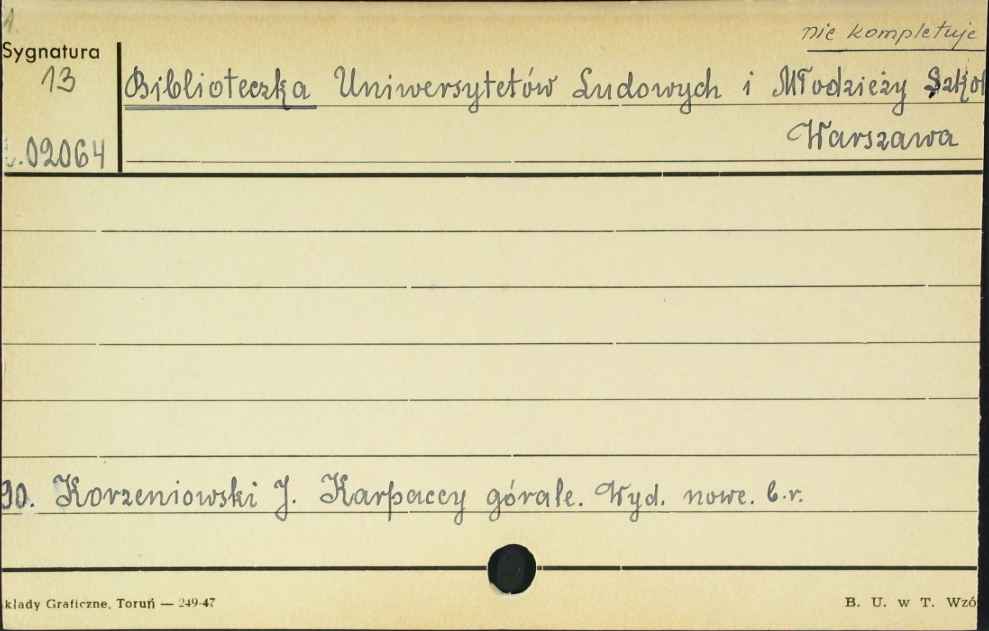 1.
nie kompletuje
Sygnatura
13
Biblioteczka Uniwersytetów Ludowych i Młodzieży Szkol
Warszawa
.02064
90. Korzeniowski J. Karpaccy górale. Wyd. nowe. b.r.
kłady Graficzne, Toruń — 249-47
B. U. w T. Wzó